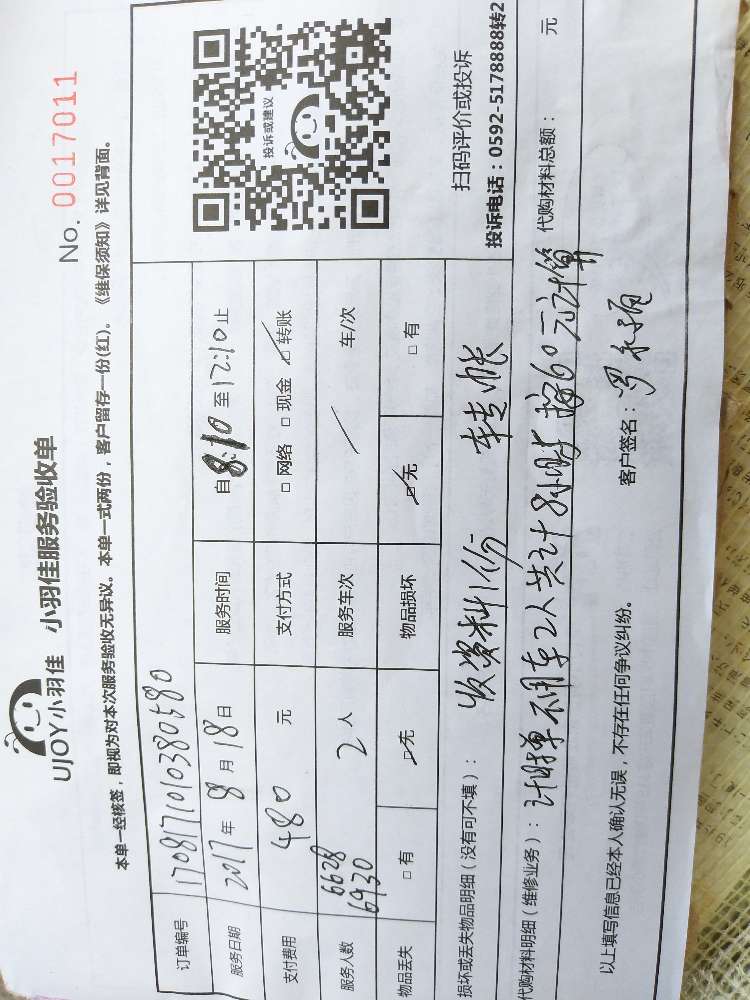 UJOY小羽佳 小羽佳服务验收单
No. 0017011
本单一经核签，即视为对本次服务验收无异议。本单一式两份，客户留存一份(红)。《维保须知》详见背面。
订单编号 1708171010380580
服务日期 2017年8月18日 服务时间 自8:10至12:10止
支付费用 480元 支付方式 □网络 □现金 ☑转账
服务人数 6628 6930 2人 服务车次 / 车/次
物品丢失 □有 ☑无 物品损坏 ☑无 □有
投诉或建议
扫码评价或投诉
投诉电话：0592-5178888转2
损坏或丢失物品明细（没有可不填）： 收资料1份 转帐
代购材料明细（维修业务）：计时单 不用车2人共计8小时 按60元计算 代购材料总额： 元
以上填写信息已经本人确认无误，不存在任何争议纠纷。 客户签名：罗